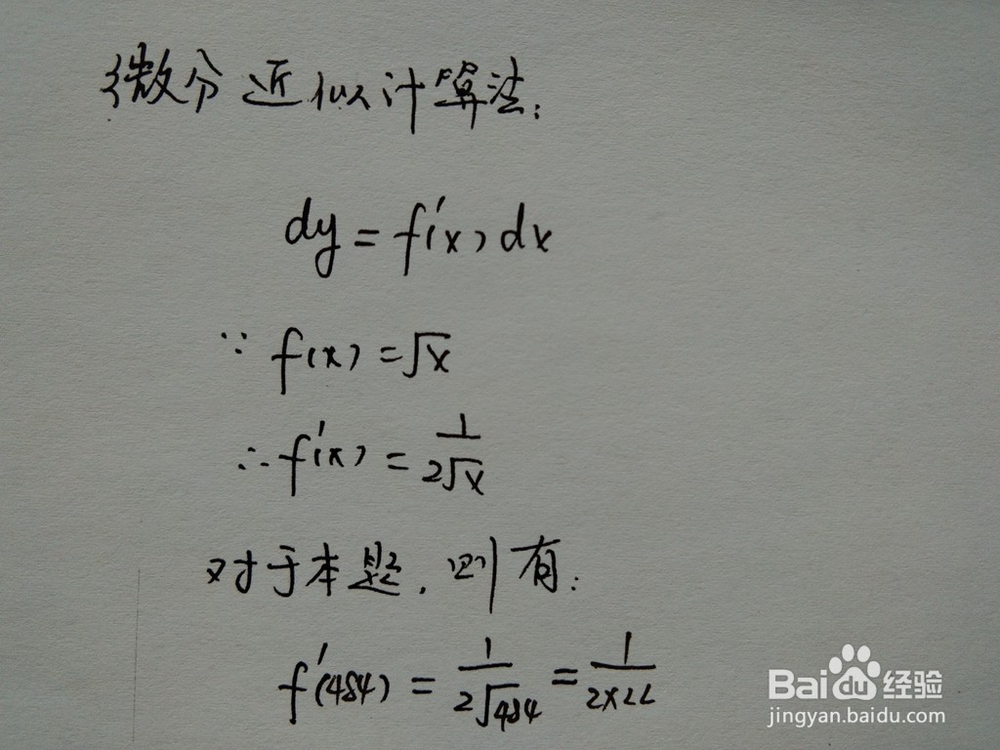 微分近似计算法:
dy = f'(x) dx
∵ f(x) = √x
∴ f'(x) = 1/(2√x)
对于本题, 则有:
f'(484) = 1/(2√484) = 1/(2×22)
Baidu 经验
jingyan.baidu.com